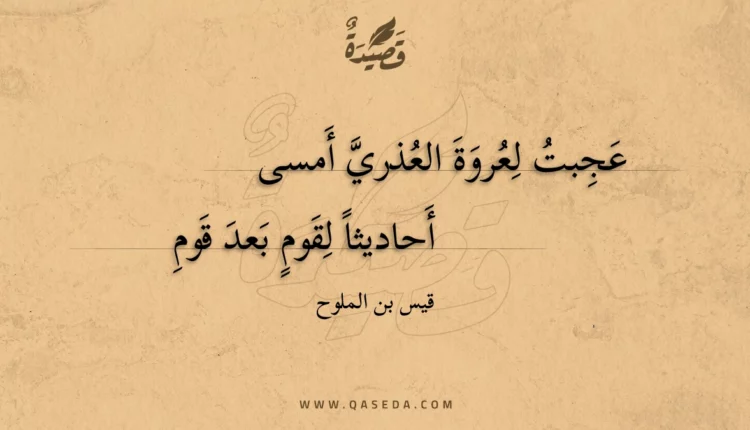 قَصِيدَةٌ
عَجِبتُ لِعُروَةَ العُذريَّ أَمسى
أَحاديثاً لِقَومٍ بَعدَ قَومِ
قيس بن الملوح
WWW.QASEDA.COM